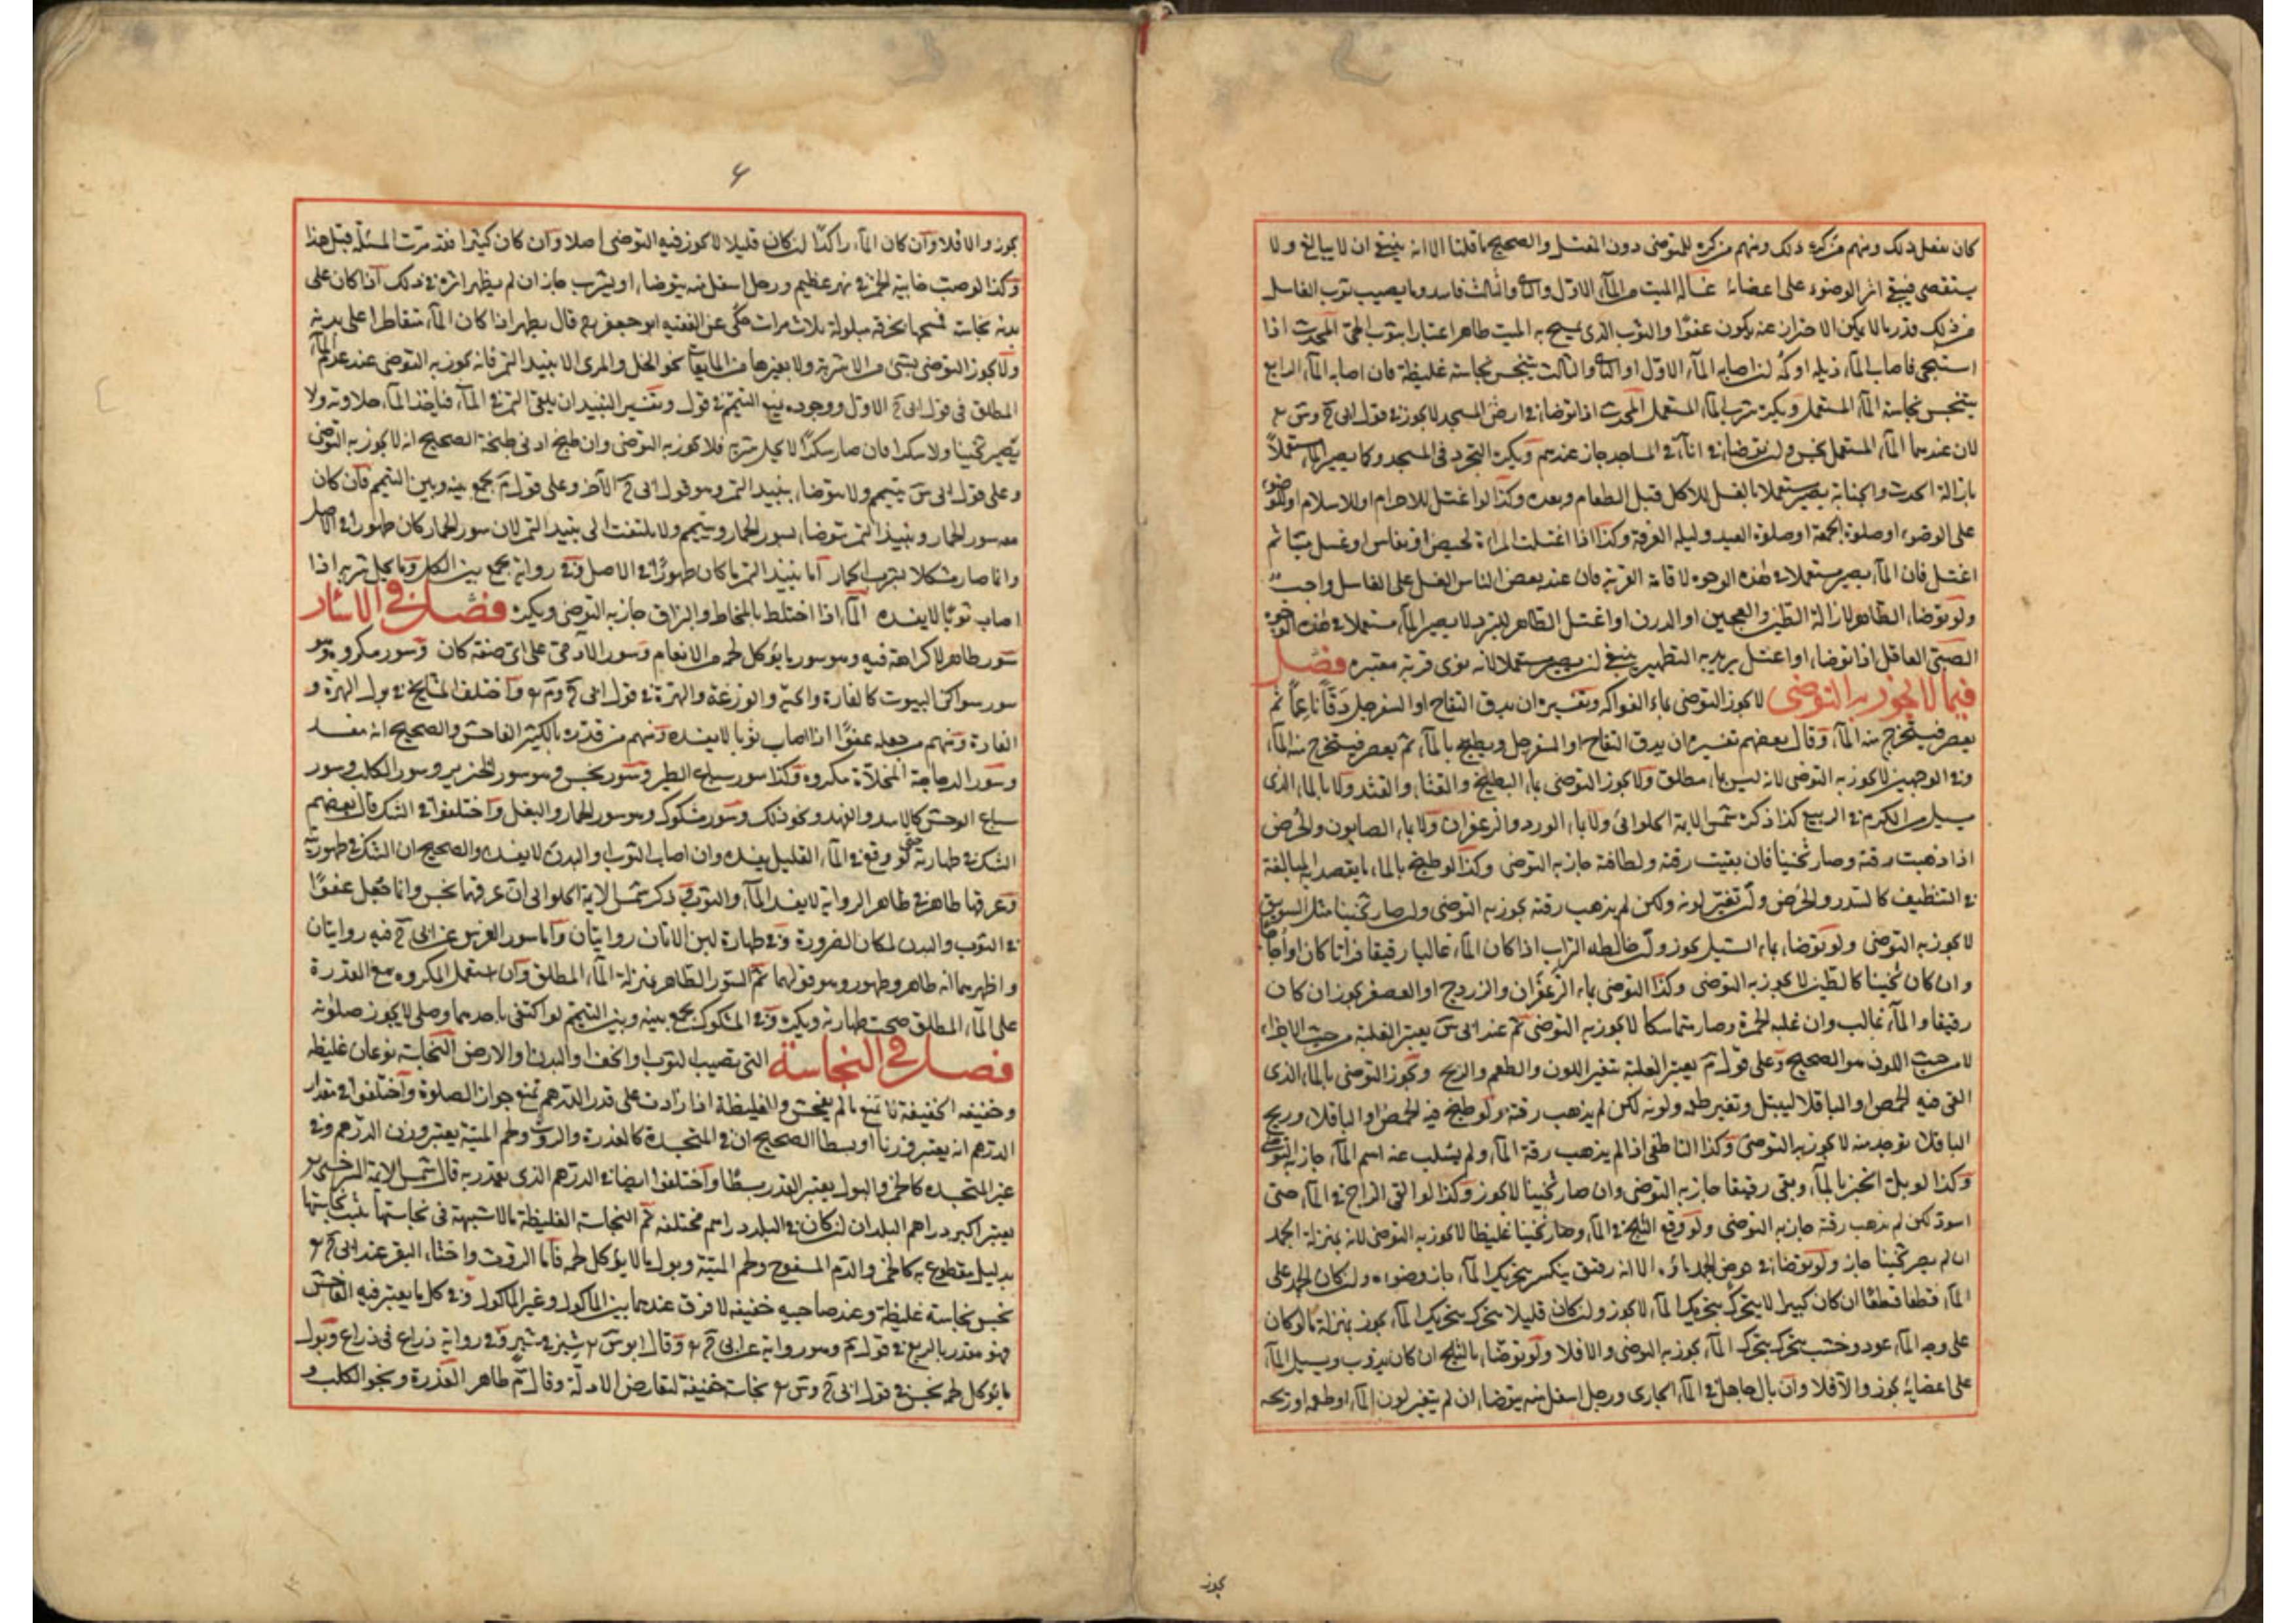 كان يفعل ذلك ومنهم من كره ذلك ومنهم من كره للمتوضى دون المغتسل والصحيح ما قلنا الا انه ينبغي ان لا يبالغ ولا
يستقصى فيبقى اثر الوضوء على اعضائه غسالة الميت من الماء الاول والثانى والثالث فاسد وما يصيب ثوب الغاسل
من ذلك قدر ما لا يمكن الاحتراز عنه يكون عفوا والثوب الذى يمسح به الميت طاهر اعتبارا بثوب الحى المحدث اذا
استنجى فاصاب الماء ذيله او كمه ان اصابه الماء الاول او الثانى والثالث يتنجس نجاسة غليظة فان اصابه الماء الرابع
يتنجس نجاسة الماء المستعمل ويكره شرب الماء المستعمل المحدث اذا توضا فى ارض المسجد لا يجوز فى قول ابى ح وس رح
لان عندهما الماء المستعمل نجس ولن توضا فى اناء فى المساجد جاز عندهم ويكره التجرد فى المسجد وكما يصير الماء مستعملا
بازالة الحدث والجنابة يصير مستعملا بالغسل للاكل قبل الطعام وبعده وكذا لو اغتسل للاحرام او للاسلام او للوضوء
على الوضوء او صلوة الجمعة او صلوة العيد وليلة العرفة وكذا اذا اغتسلت المراة لحيض او نفاس او غسل ميتا ثم
اغتسل فان الماء يصير مستعملا فى هذه الوجوه لاقامة القربة فان عند بعض الناس الغسل على الغاسل واجب
ولو توضا الطاهر لازالة الطين والعجين او الدرن او اغتسل الطاهر للتبرد لا يصير الماء مستعملا فى هذه الوجوه
الصبى العاقل اذا توضا او اغتسل يريد به التطهير ينبغى ان يصير مستعملا لانه نوى قربة معتبره فصل
فيما لا يجوز به التوضى لا يجوز التوضى بماء الفواكه وتفسيره ان يدق التفاح او السفرجل دقا ناعما ثم
يعصر فيستخرج منه الماء وقال بعضهم تفسيره ان يدق التفاح او السفرجل ويطبخ بالماء ثم يعصر فيستخرج منه الماء
وفى الوجهين لا يجوز به التوضى لانه ليس بماء مطلق ولا يجوز التوضى بماء البطيخ والقثاء والقثد ولا بالماء الذى
يسيل من الكرم فى الربيع كذا ذكره شمس الايمة الحلوائى ولا بماء الورد والزعفران ولا بماء الصابون والحرض
اذا ذهبت رقته وصار ثخينا فان بقيت رقته ولطافته جاز به التوضى وكذا لو طبخ بالماء ما يقصد به المبالغة
فى التنظيف كالسدر والحرض وان تغير لونه ولكن لم يذهب رقته يجوز به التوضى ولن صار ثخينا مثل السويق
لا يجوز به التوضى ولو توضا بماء السيل يجوز وان خالطه التراب اذا كان الماء غالبا رقيقا فراتا كان او اجاجا
وان كان ثخينا كالطين لا يجوز به التوضى وكذا التوضى بماء الزعفران والزردج او العصفر يجوز ان كان
رقيقا والماء غالب وان غلبه الحمرة وصار متماسكا لا يجوز به التوضى ثم عند ابى س يعتبر الغلبة من حيث الاجزاء
لا من حيث اللون هو الصحيح وعلى قول م يعتبر الغلبة بتغير اللون والطعم والريح ويجوز التوضى بالماء الذى
القى فيه الحمص او الباقلا ليبتل وتغير طعمه ولونه لكن لم يذهب رقته ولو طبخ فيه الحمص او الباقلا وريح
الباقلا توجد منه لا يجوز به التوضى وكذا الناطفى اذا لم يذهب رقة الماء ولم يسلب عنه اسم الماء جاز به التوضى
وكذا لو بل الخبز بالماء وبقى رقيقا جاز به التوضى وان صار ثخينا لا يجوز وكذا لو القى الزاج فى الماء حتى
اسود لكن لم يذهب رقته جاز به التوضى ولو وقع الثلج فى الماء وصار ثخينا غليظا لا يجوز به التوضى لانه بمنزلة الجمد
ان لم يصر ثخينا جاز ولو توضا فى حوض الجمد ماؤه الا انه رقيق ينكسر بتحريك الماء جاز وضوءه ولن كان الجمد على
الماء قطعا قطعا ان كان كبيرا لا يتحرك بتحريك الماء لا يجوز ولن كان قليلا يتحرك بتحريك الماء يجوز بمنزلة ما لو كان
على وجه الماء عود وخشب يتحرك بتحرك الماء يجوز به التوضى والا فلا ولو توضا بالثلج ان كان يذوب ويسيل الماء
على اعضائه يجوز والا فلا وان بال جاهل فى الماء الجارى ورجل اسفل منه يتوضا ان لم يتغير لون الماء او طعمه او ريحه
يجوز
٤
يجوز والا فلا وان كان الماء راكدا ان كان قليلا لا يجوز فيه التوضى اصلا وان كان كثيرا فقد مرت المسئلة قبل هذا
وكذا لو صب خابية الخمر فى نهر عظيم ورجل اسفل منه يتوضا او يشرب جاز ان لم يظهر اثره فى ذلك اذا كان على
بدنه نجاسة فمسحها بخرقة مبلولة ثلاث مرات حكى عن الفقيه ابو جعفر رح قال يطهر اذا كان الماء متقاطرا على بدنه
ولا يجوز التوضى بشىء من الاشربة ولا بغيرها من المايعات نحو الخل والمرى الا نبيذ التمر فانه يجوز به التوضى عند عدم الماء
المطلق فى قول ابى ح الاول ووجوده يبيح التيمم فى قوله وتفسير النبيذ ان يلقى التمر فى الماء فياخذ الماء حلاوته ولا
يصير ثخينا ولا مسكرا فان صار مسكرا لا يحل شربه فلا يجوز به التوضى وان طبخ ادنى طبخة الصحيح انه لا يجوز به التوضى
وعلى قول ابى س يتيمم ولا يتوضا بنبيذ التمر وهو قول ابى ح الاخر وعلى قول م يجمع بينه وبين التيمم فان كان
معه سور الحمار ونبيذ التمر يتوضا بسور الحمار ويتيمم ولا يلتفت الى نبيذ التمر لان سور الحمار كان طهورا فى الاصل
وانما صار مشكلا بشرب الحمار اما نبيذ التمر ما كان طهورا فى الاصل وفى رواية يجمع بين الكل وما يحل شربه اذا
اصاب ثوبا لا يفسده الماء اذا اختلط بالمخاط والبزاق جاز به التوضى ويكره فصل فى الاسٔار
سور طاهر لا كراهة فيه وهو سور ما يؤكل لحمه من الانعام وسور الآدمى على اى صفة كان وسور مكروه وهو
سور سواكن البيوت كالفارة والحية والوزغة والهرة فى قول ابى ح وم رح واختلف المشايخ فى بول الهرة و
الفارة ومنهم من جعله عفوا اذا اصاب ثوبا لا يفسده ومنهم من قدره بالكثير الفاحش والصحيح انه مفسد
وسور الدجاجة المخلاة مكروه وكذا سور سباع الطير وسور نجس وهو سور الخنزير وسور الكلب وسور
سباع الوحش كالاسد والفهد ونحو ذلك وسور مشكوك وهو سور الحمار والبغل واختلفوا فى الشك قال بعضهم
الشك فى طهارته حتى لو وقع فى الماء القليل يفسده وان اصاب الثوب او البدن لا يفسده والصحيح ان الشك فى طهوريته
وعرقها طاهر فى ظاهر الرواية لا يفسد الماء والثوب وذكر شمس الايمة الحلوائى ان عرقها نجس وانما جعل عفوا
فى الثوب والبدن لمكان الضرورة وفى طهارة لبن الاتان روايتان واما سور الفرس عن ابى ح فيه روايتان
واظهرهما انه طاهر وطهور وهو قولهما ثم السور الطاهر بمنزلة الماء المطلق وان استعمل المكروه مع القدرة
على الماء المطلق صحت طهارته ويكره وفى المشكوك يجمع بينه وبين التيمم لو اكتفى باحدهما وصلى لا يجوز صلوته
فصل فى النجاسة التى تصيب الثوب او الخف او البدن او الارض النجاسة نوعان غليظة
وخفيفة الخفيفة لا تمنع ما لم يفحش والغليظة اذا زادت على قدر الدرهم تمنع جواز الصلوة واختلفوا فى مقدار
الدرهم انه يعتبر وزنا او بسطا الصحيح ان فى المتجسدة كالعذرة والروث ولحم الميتة يعتبر وزن الدرهم وفى
غير المتجسدة كالخمر والبول يعتبر القدر بسطا واختلفوا ايضا فى الدرهم الذى يقدر به قال شمس الايمة السرخسى رح
يعتبر اكبر دراهم البلدان ان كان فى البلد دراهم مختلفة ثم النجاسة الغليظة ما لا شبهة فى نجاستها يثبت نجاستها
بدليل مقطوع به كالخمر والدم المسفوح ولحم الميتة وبول ما لا يؤكل لحمه فاما الروث واخثاء البقر عند ابى ح رح
نجس نجاسة غليظة وعند صاحبيه خفيفة لا فرق عندهما بين الماكول وغير الماكول وفى كل ما يعتبر فيه الفاحش
فهو مقدر بالربع فى قول م وهو رواية عن ابى ح رح وقال ابو س رح شبر فى شبر وفى رواية ذراع فى ذراع وبول
ما يؤكل لحمه نجس فى قول ابى ح وس رح نجاسة خفيفة لتعارض الادلة وقال م طاهر العذرة ونجو الكلب و